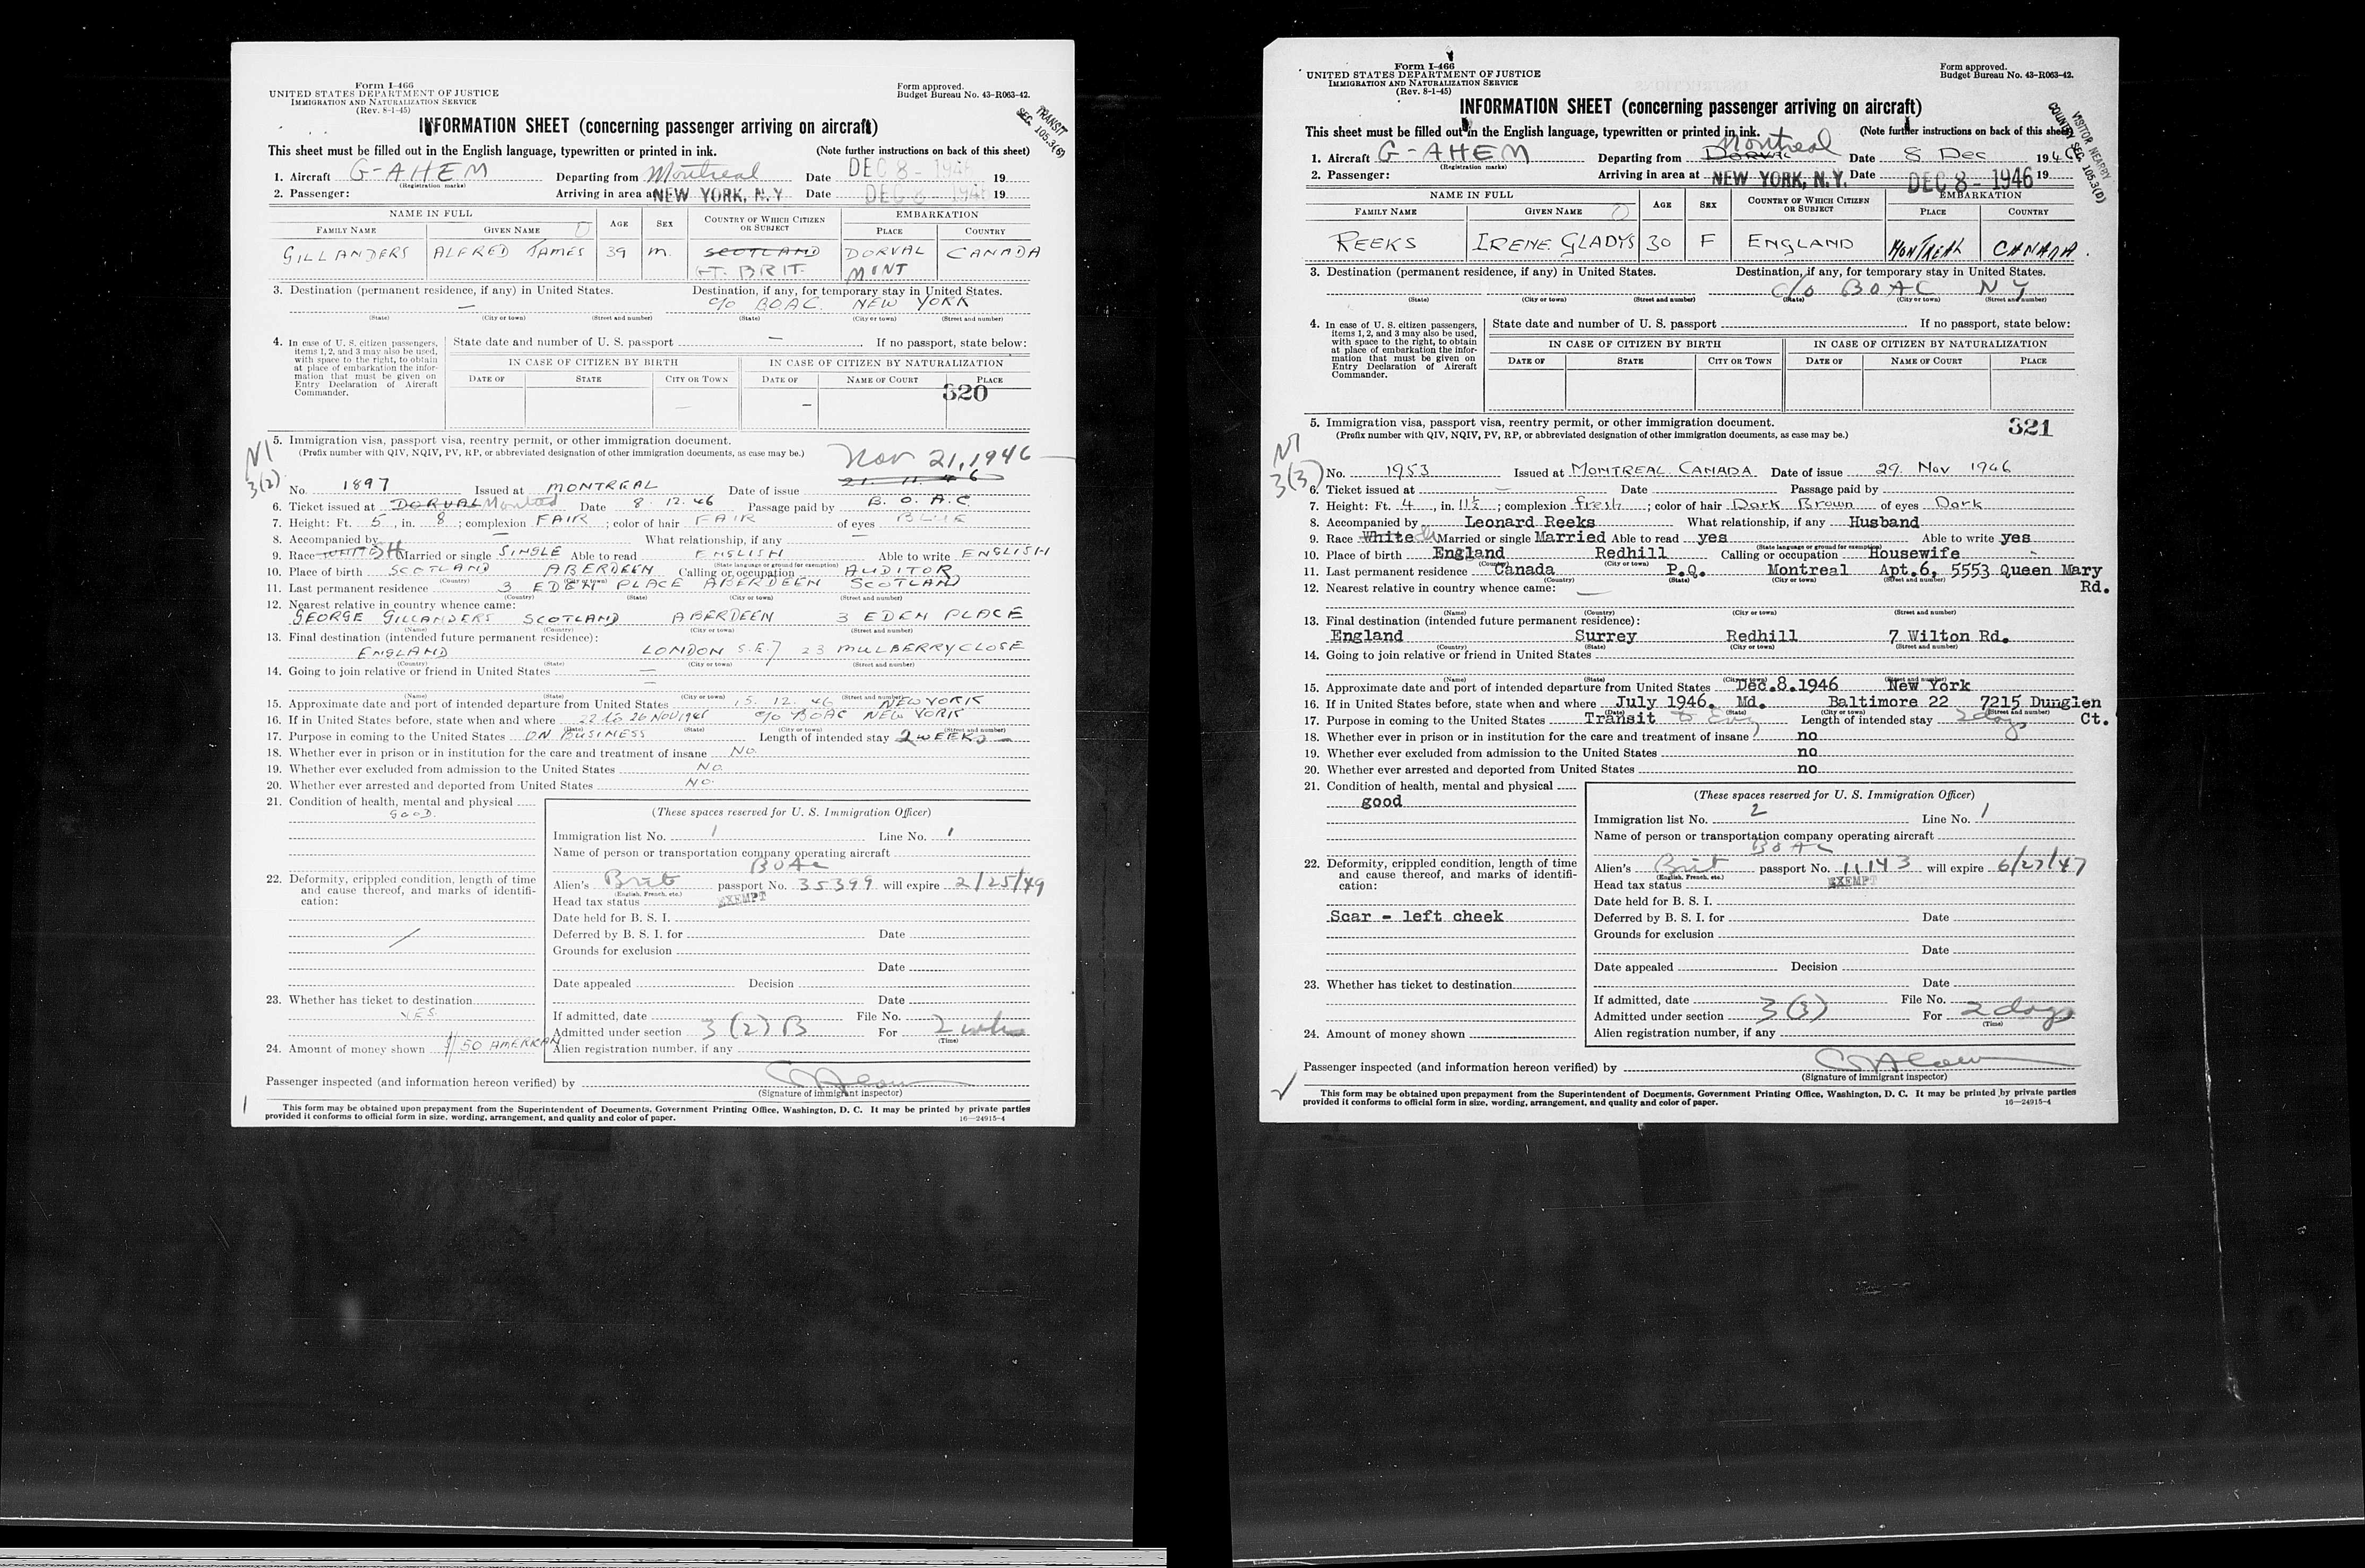 Form I-466
UNITED STATES DEPARTMENT OF JUSTICE
IMMIGRATION AND NATURALIZATION SERVICE
(Rev. 8-1-45)
Form approved.
Budget Bureau No. 43-R063-42.
TRANSIT
SEC. 105.3(6)
INFORMATION SHEET (concerning passenger arriving on aircraft)
This sheet must be filled out in the English language, typewritten or printed in ink. (Note further instructions on back of this sheet)
1. Aircraft G-AHEM Departing from Montreal Date DEC 8 - 1946 19
(Registration marks)
2. Passenger: Arriving in area at NEW YORK, N.Y Date DEC 8 - 1946 19
NAME IN FULL AGE SEX COUNTRY OF WHICH CITIZEN OR SUBJECT EMBARKATION
FAMILY NAME GIVEN NAME PLACE COUNTRY
GILLANDERS ALFRED JAMES 39 M. SCOTLAND DORVAL CANADA
GT. BRIT. MONT
3. Destination (permanent residence, if any) in United States. Destination, if any, for temporary stay in United States.
— c/o BOAC. NEW YORK
(State) (City or town) (Street and number) (State) (City or town) (Street and number)
4. In case of U. S. citizen passengers, items 1, 2, and 3 may also be used, with space to the right, to obtain at place of embarkation the information that must be given on Entry Declaration of Aircraft Commander.
State date and number of U. S. passport — If no passport, state below:
IN CASE OF CITIZEN BY BIRTH IN CASE OF CITIZEN BY NATURALIZATION
DATE OF STATE CITY OR TOWN DATE OF NAME OF COURT PLACE
320
5. Immigration visa, passport visa, reentry permit, or other immigration document.
(Prefix number with QIV, NQIV, PV, RP, or abbreviated designation of other immigration documents, as case may be.)
NI
3(2)
Nov 21, 1946
No. 1897 Issued at MONTREAL Date of issue 21. 11. 46
6. Ticket issued at DORVAL Montreal Date 8. 12. 46 Passage paid by B. O. A. C.
7. Height: Ft. 5, in. 8; complexion FAIR; color of hair FAIR of eyes BLUE
8. Accompanied by — What relationship, if any —
9. Race WHITE Married or single SINGLE Able to read ENGLISH Able to write ENGLISH
(State language or ground for exemption)
10. Place of birth SCOTLAND ABERDEEN Calling or occupation AUDITOR
(Country) (City or town)
11. Last permanent residence 3 EDEN PLACE ABERDEEN SCOTLAND
(Country) (State) (City or town) (Street and number)
12. Nearest relative in country whence came:
GEORGE GILLANDERS SCOTLAND ABERDEEN 3 EDEN PLACE
(Name) (Country) (City or town) (Street and number)
13. Final destination (intended future permanent residence):
ENGLAND LONDON S.E.7 23 MULBERRY CLOSE
(Country) (State) (City or town) (Street and number)
14. Going to join relative or friend in United States —
—
(Name) (State) (City or town) (Street and number)
15. Approximate date and port of intended departure from United States 15. 12. 46 NEW YORK
16. If in United States before, state when and where 22 to 26 NOV 1946 c/o BOAC NEW YORK
(Date) (State) (City or town) (Street and number)
17. Purpose in coming to the United States ON BUSINESS Length of intended stay 2 WEEKS
18. Whether ever in prison or in institution for the care and treatment of insane NO.
19. Whether ever excluded from admission to the United States NO
20. Whether ever arrested and deported from United States NO.
21. Condition of health, mental and physical
GOOD.
22. Deformity, crippled condition, length of time and cause thereof, and marks of identification:
23. Whether has ticket to destination
YES
24. Amount of money shown $50 AMERICAN
(These spaces reserved for U. S. Immigration Officer)
Immigration list No. 1 Line No. 1
Name of person or transportation company operating aircraft
BOAC
Alien's Brit passport No. 35399 will expire 2/25/49
(English, French, etc.)
Head tax status EXEMPT
Date held for B. S. I.
Deferred by B. S. I. for Date
Grounds for exclusion
Date
Date appealed Decision
Date
If admitted, date File No.
Admitted under section 3(2)B For 2 wks
(Time)
Alien registration number, if any
Passenger inspected (and information hereon verified) by
(Signature of immigrant inspector)
This form may be obtained upon prepayment from the Superintendent of Documents, Government Printing Office, Washington, D. C. It may be printed by private parties
provided it conforms to official form in size, wording, arrangement, and quality and color of paper. 16—24915-4
Form I-466
UNITED STATES DEPARTMENT OF JUSTICE
IMMIGRATION AND NATURALIZATION SERVICE
(Rev. 8-1-45)
Form approved.
Budget Bureau No. 43-R063-42.
VISITOR NEARBY
COUNTRY SEC. 105.3(D)
INFORMATION SHEET (concerning passenger arriving on aircraft)
This sheet must be filled out in the English language, typewritten or printed in ink. (Note further instructions on back of this sheet)
1. Aircraft G-AHEM Departing from DORVAL Montreal Date 8 Dec 1946
(Registration marks)
2. Passenger: Arriving in area at NEW YORK, N.Y. Date DEC 8 - 1946 19
NAME IN FULL AGE SEX COUNTRY OF WHICH CITIZEN OR SUBJECT EMBARKATION
FAMILY NAME GIVEN NAME PLACE COUNTRY
REEKS IRENE GLADYS 30 F ENGLAND MONTREAL CANADA.
3. Destination (permanent residence, if any) in United States. Destination, if any, for temporary stay in United States.
c/o BOAC N Y
(State) (City or town) (Street and number) (State) (City or town) (Street and number)
4. In case of U. S. citizen passengers, items 1, 2, and 3 may also be used, with space to the right, to obtain at place of embarkation the information that must be given on Entry Declaration of Aircraft Commander.
State date and number of U. S. passport If no passport, state below:
IN CASE OF CITIZEN BY BIRTH IN CASE OF CITIZEN BY NATURALIZATION
DATE OF STATE CITY OR TOWN DATE OF NAME OF COURT PLACE
321
5. Immigration visa, passport visa, reentry permit, or other immigration document.
(Prefix number with QIV, NQIV, PV, RP, or abbreviated designation of other immigration documents, as case may be.)
NI
3(3)
No. 1953 Issued at MONTREAL CANADA Date of issue 29. Nov 1946
6. Ticket issued at — Date Passage paid by
7. Height: Ft. 4, in. 11½; complexion fresh; color of hair Dark Brown of eyes Dark
8. Accompanied by Leonard Reeks What relationship, if any Husband
9. Race White Married or single Married Able to read yes Able to write yes
(State language or ground for exemption)
10. Place of birth England Redhill Calling or occupation Housewife
(Country) (City or town)
11. Last permanent residence Canada P.Q. Montreal Apt.6, 5553 Queen Mary Rd.
(Country) (State) (City or town) (Street and number)
12. Nearest relative in country whence came: —
(Name) (Country) (City or town) (Street and number)
13. Final destination (intended future permanent residence):
England Surrey Redhill 7 Wilton Rd.
(Country) (State) (City or town) (Street and number)
14. Going to join relative or friend in United States
(Name) (State) (City or town) (Street and number)
15. Approximate date and port of intended departure from United States Dec.8.1946 New York
16. If in United States before, state when and where July 1946. Md. Baltimore 22 7215 Dunglen Ct.
(Date) (State) (City or town) (Street and number)
17. Purpose in coming to the United States Transit to Eng Length of intended stay 2 days
18. Whether ever in prison or in institution for the care and treatment of insane no
19. Whether ever excluded from admission to the United States no
20. Whether ever arrested and deported from United States no
21. Condition of health, mental and physical
good
22. Deformity, crippled condition, length of time and cause thereof, and marks of identification:
Scar - left cheek
23. Whether has ticket to destination
24. Amount of money shown
(These spaces reserved for U. S. Immigration Officer)
Immigration list No. 2 Line No. 1
Name of person or transportation company operating aircraft
BOAC
Alien's Brit passport No. 11143 will expire 6/27/47
(English, French, etc.)
Head tax status EXEMPT
Date held for B. S. I.
Deferred by B. S. I. for Date
Grounds for exclusion
Date
Date appealed Decision
Date
If admitted, date File No.
Admitted under section 3(3) For 2 days
(Time)
Alien registration number, if any
Passenger inspected (and information hereon verified) by
(Signature of immigrant inspector)
This form may be obtained upon prepayment from the Superintendent of Documents, Government Printing Office, Washington, D. C. It may be printed by private parties
provided it conforms to official form in size, wording, arrangement, and quality and color of paper. 16—24915-4